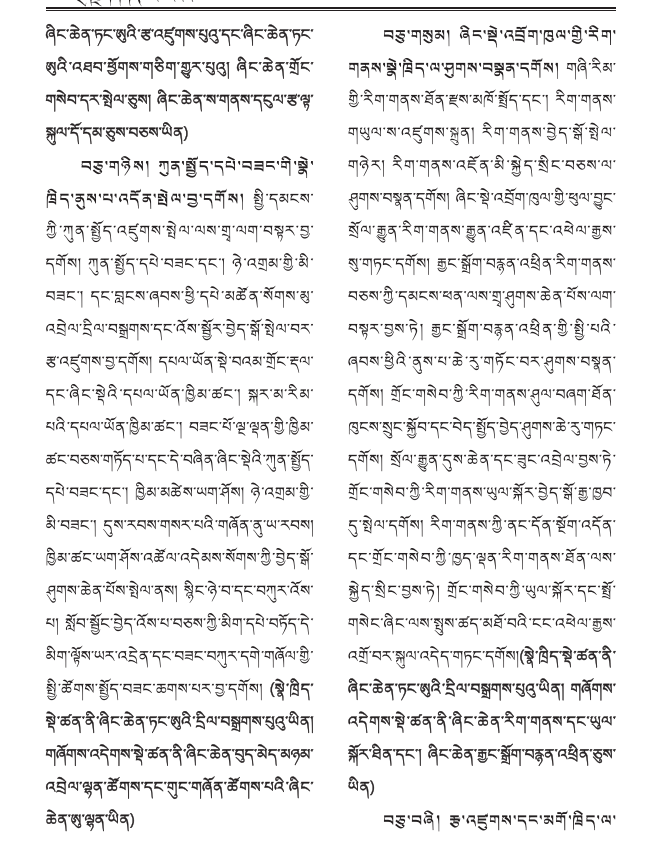 ཞིང་ཆེན་ཏང་ཨུའི་རྩ་འཛུགས་པུའུ་དང་ཞིང་ཆེན་ཏང་
ཨུའི་འཐབ་ཕྱོགས་གཅིག་གྱུར་པུའུ། ཞིང་ཆེན་གྲོང་
གསེབ་དར་སྤེལ་ཅུས། ཞིང་ཆེན་ས་གནས་དངུལ་རྩ་ལྟ་
སྐུལ་དོ་དམ་ཅུས་བཅས་ཡིན)
བཅུ་གཉིས། ཀུན་སྤྱོད་དཔེ་བཟང་གི་སྣེ་
ཁྲིད་ནུས་པ་འདོན་སྤེལ་བྱ་དགོས། སྤྱི་དམངས་
ཀྱི་ཀུན་སྤྱོད་འཛུགས་སྤེལ་ལས་གྲྭ་ལག་བསྟར་བྱ་
དགོས། ཀུན་སྤྱོད་དཔེ་བཟང་དང་། ཉེ་འགྲམ་གྱི་མི་
བཟང་། དང་བླངས་ཞབས་ཕྱི་དཔེ་མཚོན་སོགས་མུ་
འབྲེལ་དྲིལ་བསྒྲགས་དང་འོས་སྦྱོར་བྱེད་སྒོ་སྤེལ་བར་
རྩ་འཛུགས་བྱ་དགོས། དཔལ་ཡོན་སྡེ་བའམ་གྲོང་རྡལ་
དང་ཞིང་སྡེའི་དཔལ་ཡོན་ཁྱིམ་ཚང་། སྐར་མ་རིམ་
པའི་དཔལ་ཡོན་ཁྱིམ་ཚང་། བཟང་པོ་ལྔ་ལྡན་གྱི་ཁྱིམ་
ཚང་བཅས་གཏོད་པ་དང་དེ་བཞིན་ཞིང་སྡེའི་ཀུན་སྤྱོད་
དཔེ་བཟང་དང་། ཁྱིམ་མཚེས་ཡག་ཤོས། ཉེ་འགྲམ་གྱི་
མི་བཟང་། དུས་རབས་གསར་པའི་གཞོན་ནུ་ཡ་རབས།
ཁྱིམ་ཚང་ཡག་ཤོས་འཚོལ་འདེམས་སོགས་ཀྱི་བྱེད་སྒོ་
ཤུགས་ཆེན་པོས་སྤེལ་ནས། སྙིང་ཉེ་བ་དང་བཀུར་འོས་
པ། སློབ་སྦྱོང་བྱེད་འོས་པ་བཅས་ཀྱི་མིག་དཔེ་བཏོད་དེ་
མིག་ལྟོས་ཡར་འདྲེན་དང་བཟང་བཀུར་དགེ་གཞོལ་གྱི་
སྤྱི་ཚོགས་སྤྱོད་བཟང་ཆགས་པར་བྱ་དགོས། (སྣེ་ཁྲིད་
སྡེ་ཚན་ནི་ཞིང་ཆེན་ཏང་ཨུའི་དྲིལ་བསྒྲགས་པུའུ་ཡིན།
གཞོགས་འདེགས་སྡེ་ཚན་ནི་ཞིང་ཆེན་བུད་མེད་མཉམ་
འབྲེལ་ལྷན་ཚོགས་དང་གུང་གཞོན་ཚོགས་པའི་ཞིང་
ཆེན་ཨུ་ལྷན་ཡིན)
བཅུ་གསུམ། ཞིང་སྡེ་འབྲོག་ཁུལ་གྱི་རིག་
གནས་སྣེ་ཁྲིད་ལ་ཤུགས་བསྣན་དགོས། གཞི་རིམ་
གྱི་རིག་གནས་ཐོན་རྫས་མཁོ་སྤྲོད་དང་། རིག་གནས་
གཡུལ་ས་འཛུགས་སྐྲུན། རིག་གནས་བྱེད་སྒོ་སྤེལ་
གཉེར། རིག་གནས་འཛོན་མི་སྐྱེད་སྲིང་བཅས་ལ་
ཤུགས་བསྣན་དགོས། ཞིང་སྡེ་འབྲོག་ཁུལ་གྱི་ཕུལ་བྱུང་
སྲོལ་རྒྱུན་རིག་གནས་རྒྱུན་འཛིན་དང་འཕེལ་རྒྱས་
སུ་གཏང་དགོས། རྒྱང་སྒྲོག་བརྙན་འཕྲིན་རིག་གནས་
བཅས་ཀྱི་དམངས་ཕན་ལས་གྲྭ་ཤུགས་ཆེན་པོས་ལག་
བསྟར་བྱས་ཏེ། རྒྱང་སྒྲོག་བརྙན་འཕྲིན་གྱི་སྤྱི་པའི་
ཞབས་ཕྱིའི་ནུས་པ་ཆེ་རུ་གཏོང་བར་ཤུགས་བསྣན་
དགོས། གྲོང་གསེབ་ཀྱི་རིག་གནས་ཤུལ་བཞག་ཐོན་
ཁུངས་སྲུང་སྐྱོབ་དང་བེད་སྤྱོད་བྱེད་ཤུགས་ཆེ་རུ་གཏང་
དགོས། སྲོལ་རྒྱུན་དུས་ཆེན་དང་ཟུང་འབྲེལ་བྱས་ཏེ་
གྲོང་གསེབ་ཀྱི་རིག་གནས་ཡུལ་སྐོར་བྱེད་སྒོ་རྒྱ་ཁྱབ་
ཏུ་སྤེལ་དགོས། རིག་གནས་ཀྱི་ནང་དོན་སྔོག་འདོན་
དང་གྲོང་གསེབ་ཀྱི་ཁྱད་ལྡན་རིག་གནས་ཐོན་ལས་
སྐྱེད་སྲིང་བྱས་ཏེ། གྲོང་གསེབ་ཀྱི་ཡུལ་སྐོར་དང་སྤྲོ་
གསེང་ཞིང་ལས་སྤུས་ཚད་མཐོ་བའི་ངང་འཕེལ་རྒྱས་
འགྲོ་བར་སྐུལ་འདེད་གཏང་དགོས།(སྣེ་ཁྲིད་སྡེ་ཚན་ནི་
ཞིང་ཆེན་ཏང་ཨུའི་དྲིལ་བསྒྲགས་པུའུ་ཡིན། གཞོགས་
འདེགས་སྡེ་ཚན་ནི་ཞིང་ཆེན་རིག་གནས་དང་ཡུལ་
སྐོར་ཐིན་དང་། ཞིང་ཆེན་རྒྱང་སྒྲོག་བརྙན་འཕྲིན་ཅུས་
ཡིན)
བཅུ་བཞི། རྩ་འཛུགས་དང་མགོ་ཁྲིད་ལ་